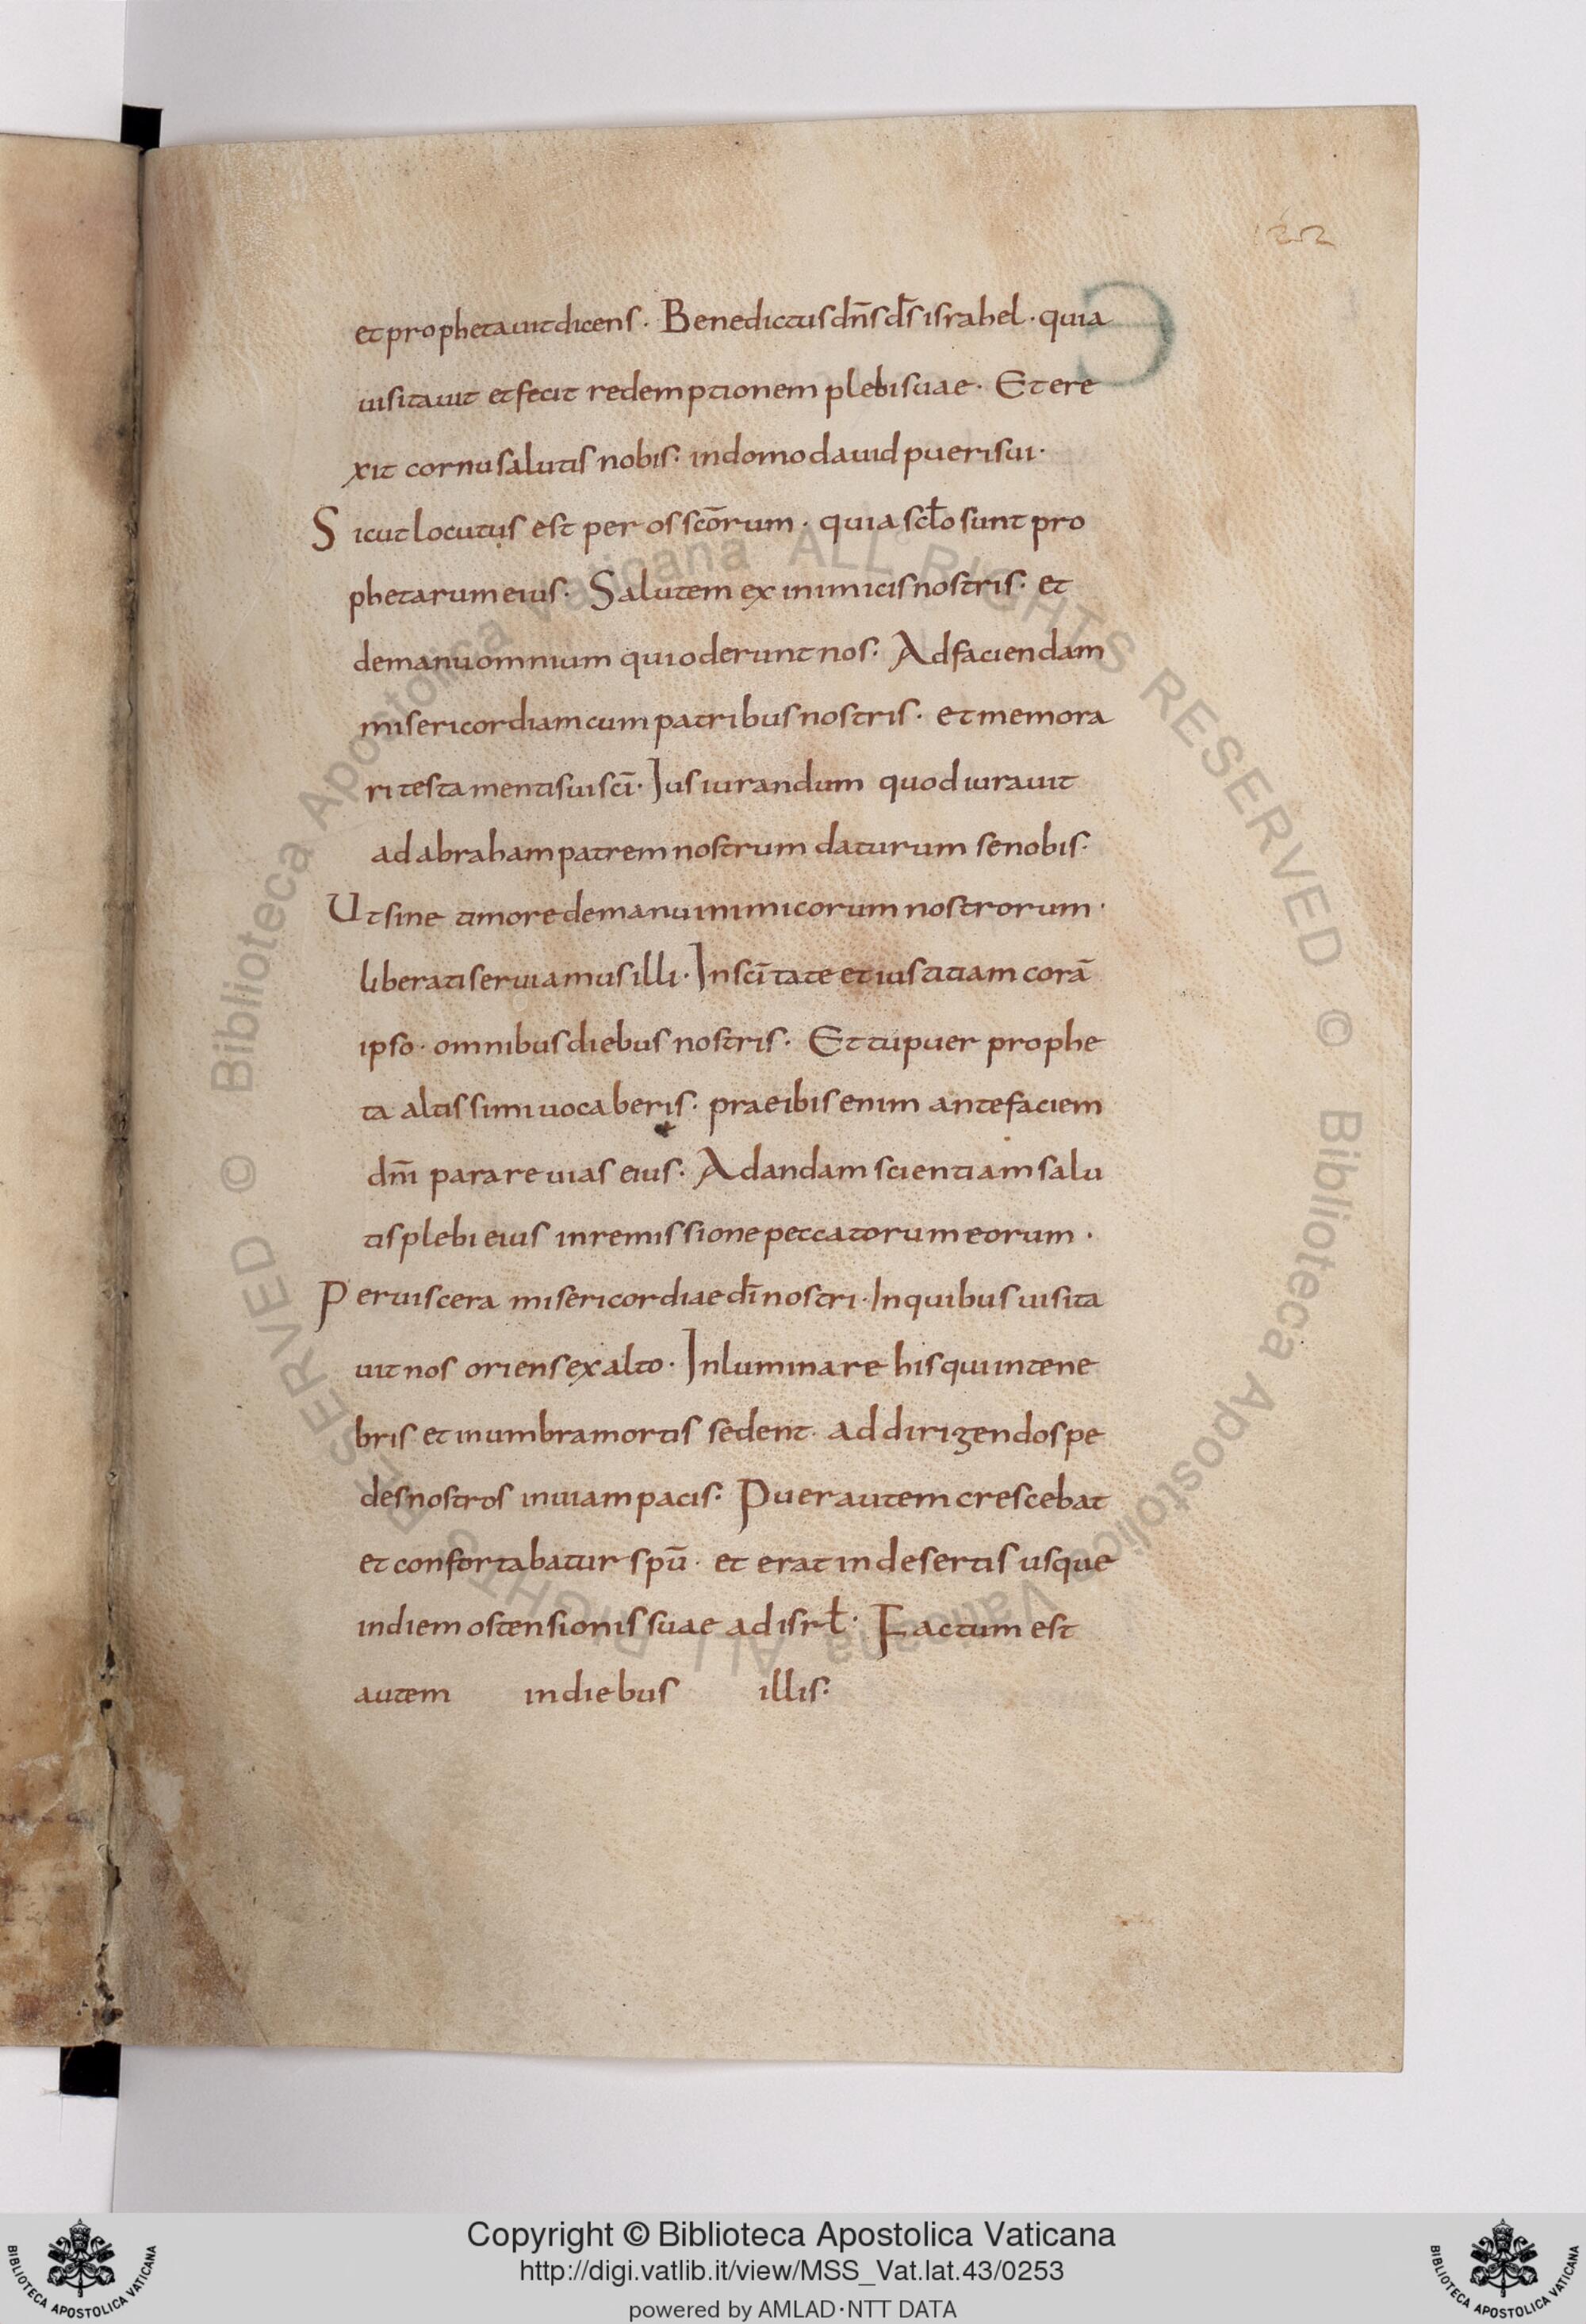 122
et prophetauit dicens · Benedictus dn̄s d̄s israhel · quia
uisitauit et fecit redemptionem plebi suae · Et ere
xit cornu salutis nobis · in domo dauid pueri sui ·
Sicut locutus est per os scōrum · qui a scło sunt pro
phetarum eius · Salutem ex inimicis nostris · et
de manu omnium qui oderunt nos · Ad faciendam
misericordiam cum patribus nostris · et memora
ri testamenti sui scī · Iusiurandum quod iurauit
ad abraham patrem nostrum daturum se nobis ·
Ut sine timore de manu inimicorum nostrorum ·
liberati seruiamus illi · In scītate et iustitiam corā
ipso · omnibus diebus nostris · Et tu puer prophe
ta altissimi uocaberis · praeibis enim ante faciem
dn̄i parare uias eius · Ad dandam scientiam salu
tis plebi eius in remissione peccatorum eorum ·
Per uiscera misericordiae dī nostri · In quibus uisita
uit nos oriens ex alto · Inluminare his qui in tene
bris et in umbra mortis sedent · ad dirigendos pe
des nostros in uiam pacis · Puer autem crescebat
et confortabatur spū · et erat in desertis usque
in diem ostensionis suae ad isrł · Factum est
autem in diebus illis ·
© Biblioteca Apostolica Vaticana ALL RIGHTS RESERVED © Biblioteca Apostolica Vaticana ALL RIGHTS RESERVED
BIBLIOTECA APOSTOLICA VATICANA
Copyright © Biblioteca Apostolica Vaticana
http://digi.vatlib.it/view/MSS_Vat.lat.43/0253
powered by AMLAD·NTT DATA
BIBLIOTECA APOSTOLICA VATICANA